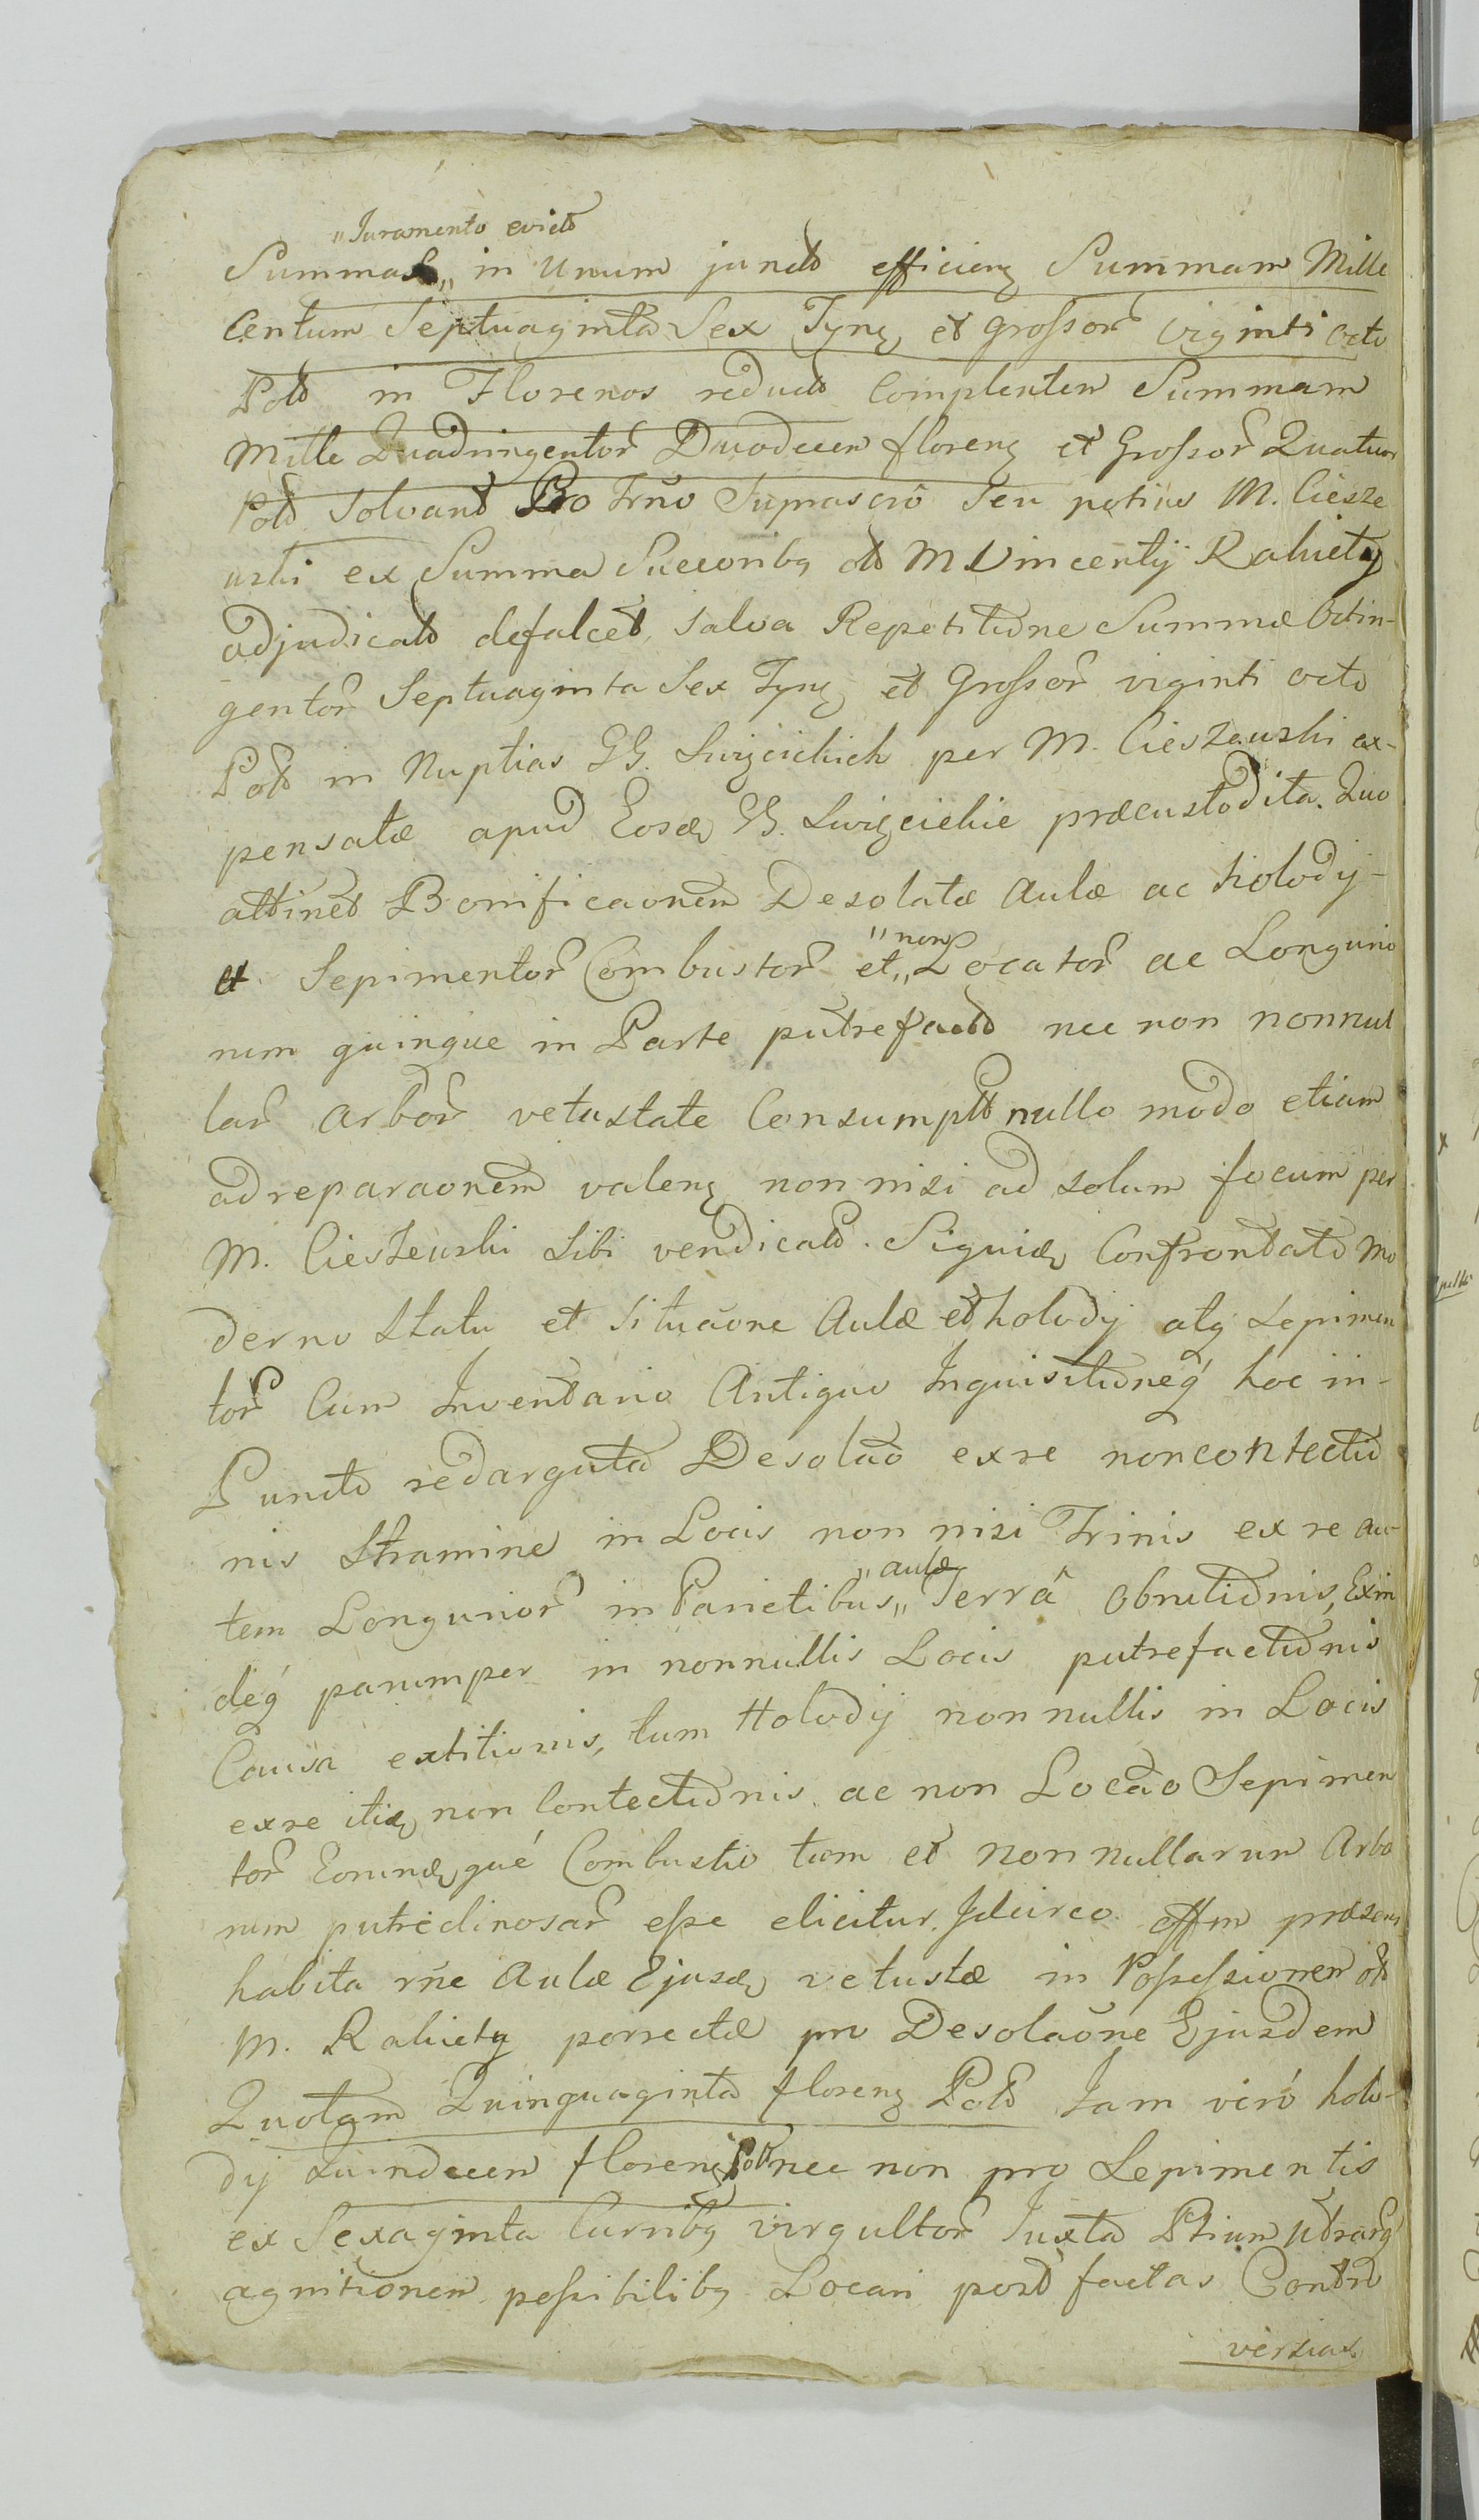 "Juramento evict
Summas" in Unum junct efficieng Summam Mille
Centum Septuaginta Sex Tynf, et grossor viginti octo
Pol in Florenos reduct Complenten Summam
Mille Quadringentor Duodecem floreng et Grossor Quatuor
Pol solvand Pro Trno Suprascro Seu potius M. Ciesze
wski ex Summa Succoribq M Vincentÿ Rahiety
adjudicat defalcet, salva Repetitione Summæ Octin-
gentor Septuaginta Sex Tynf et Grossor viginti octo
Pol in Nuptias GG. Swizcickich per M. Cieszewski ex-
pensatæ apud Eosd GG. Swizcickie præcustodita. Quo
attinet Bonificaonem Desolatæ Aulæ ac holody-
et Sepimentor Combustor et "non" Locator ac Longurio
rum quinque in Parte putrefact nec non nonnul
lar arbor vetustate Consumpt nullo modo etiam
ad reparaonem valeng non nisi ad solum focum per
M. Cieszewski Sibi vendicat. Siquid Confrontato Mo
derno Statu et Situaone Aulæ et holody atq Sepimen
tor Cum Inventario Antiquo Inquisitioneq hoc in-
Puncto redarguta Desolao ex re non contectio
nis Stramine in Locis non nisi Trinis ex re au-
tem Longurior in Parietibus "aulæ" Terrâ Obrutionis, Exin
deq parumper in nonnullis Locis putrefactionis
Causa extitionis, tum Holody non nullis in Locis
ex re itid non Contectionis. ac non Locao Sepimen
tor Eorumd qué Combustio tum et non nullarum Arbo
rum putredinosar esse elicitur. Idcirco offm præsens
habita rne Aulæ Ejusd vetustæ in Possessionem
M. Rahiety porrectæ pro Desolaone Ejusdem
Quotam Quinquaginta floreng Pol Jam veró holo-
dy Quindecem floreng Pol nec non pro Sepimentis
ex Sexaginta Curribq virgultor Juxta Ptium Utrarq
agnitionem possibilibq Locari post factas Contro
versias.